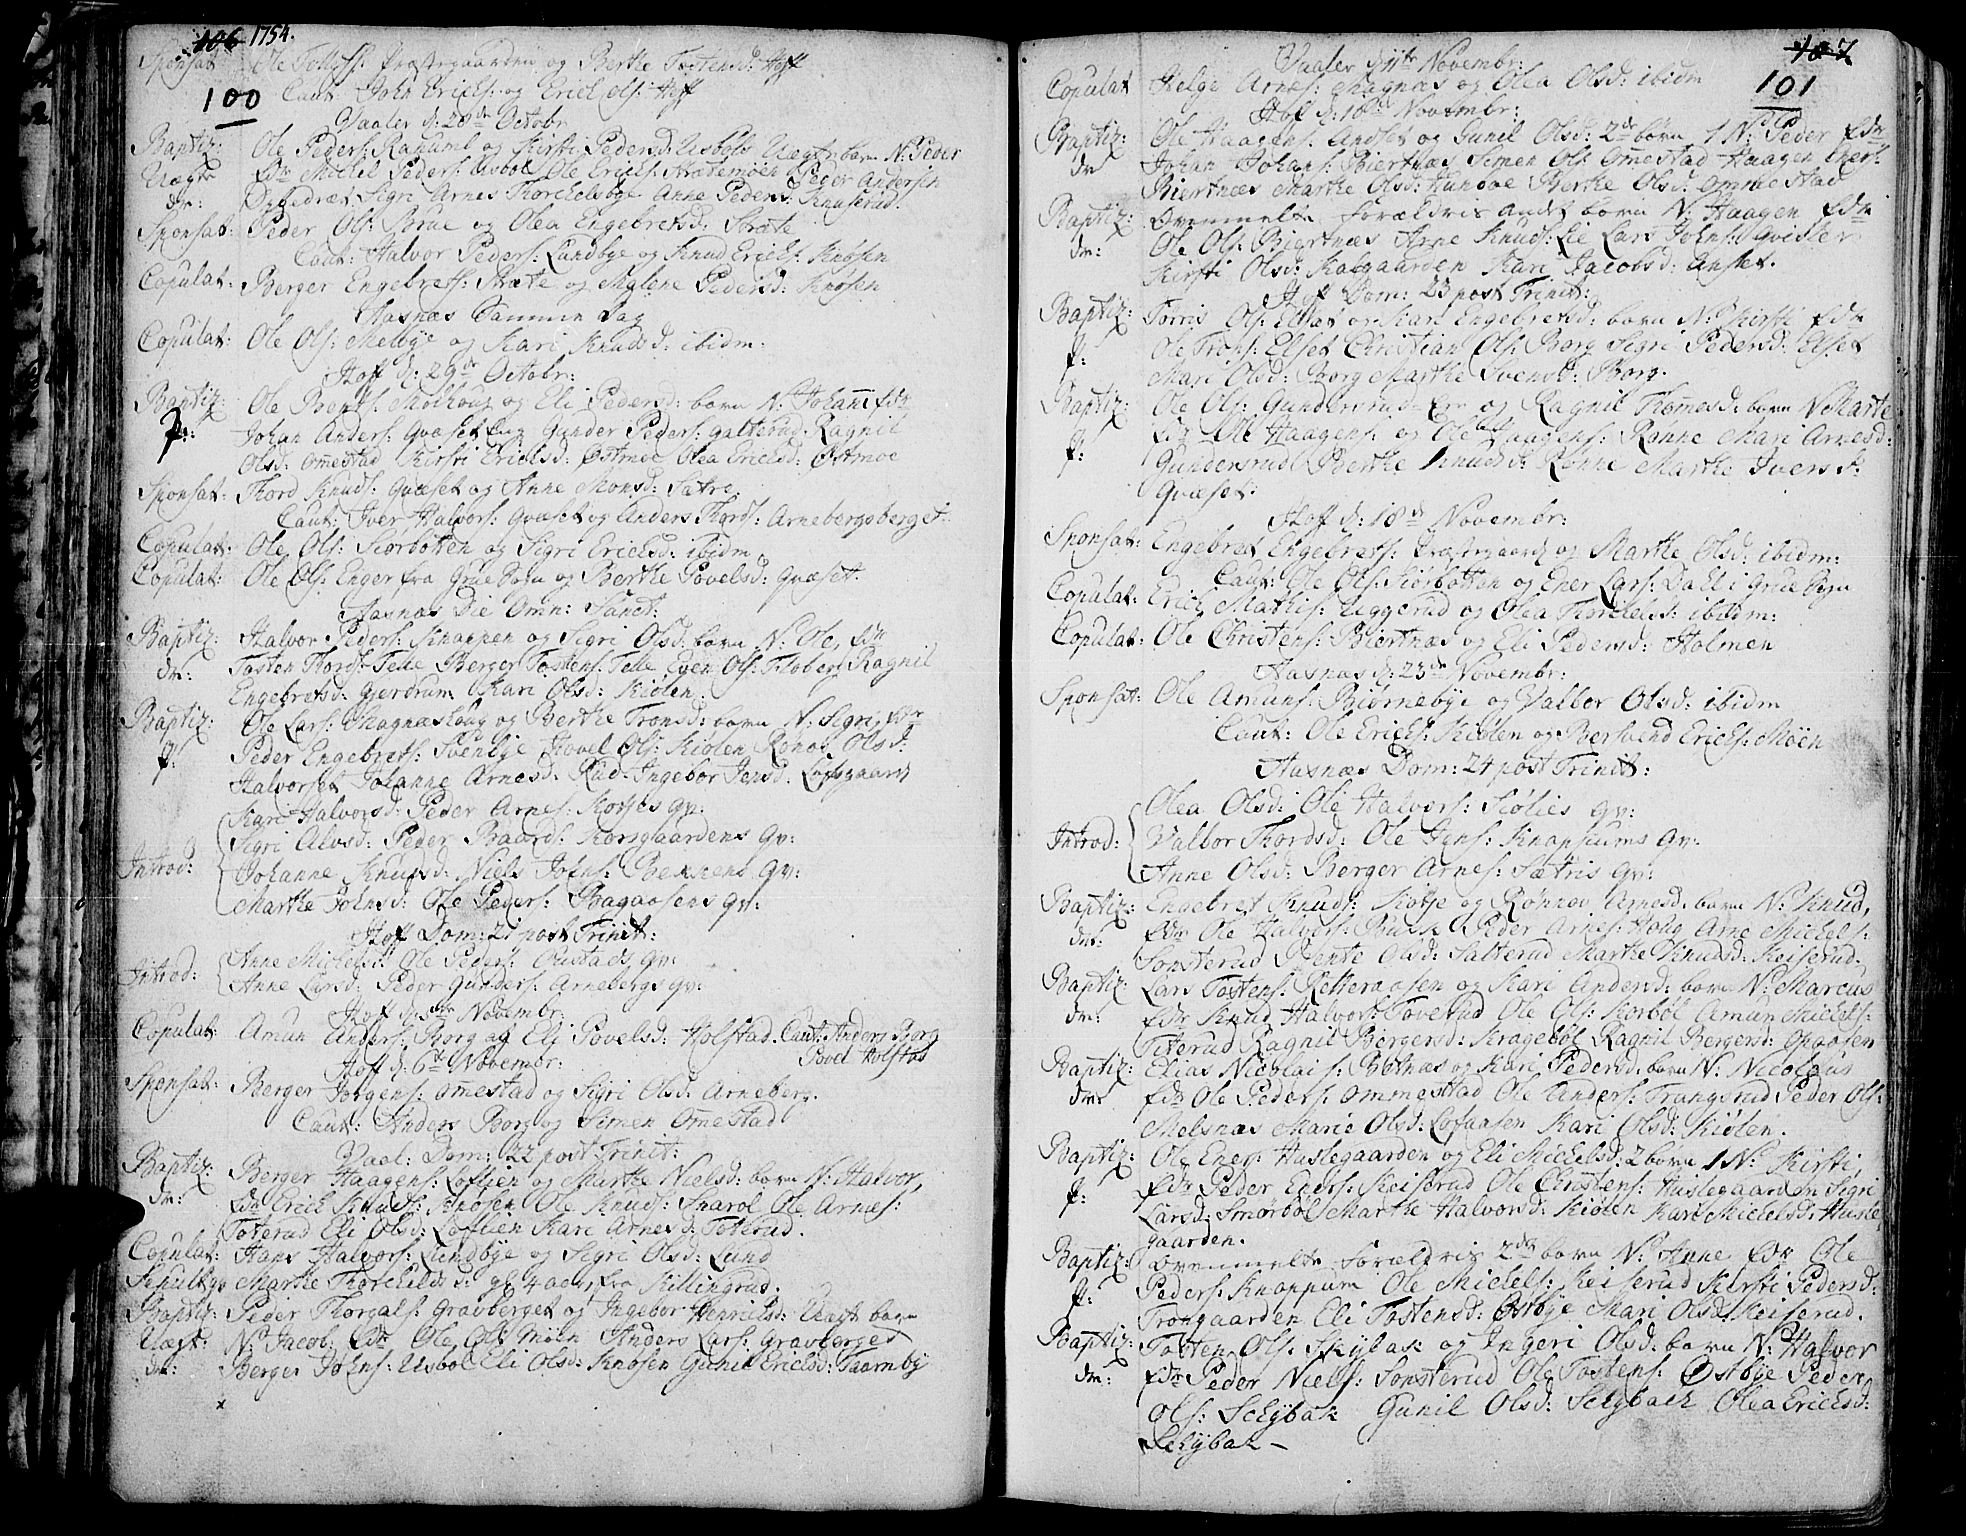 106 1754.
Sponsat Ole Præstegaarden og Berthe Tostensd: Hoff
100 Caut: John Ericks: og Erick Ols: Hoff
Vaaler d: 28de Octobr
Baptiz: Ole Peders: og Kirsti Pedersd: Usbøls Uægte barn N: Peder
Uægte fdr Michel Peders: Usbøl Ole Ericks: Peder Anders:
dr: Sigri Arnes Thorchelsbye Anne Peders: Knuserud.
Sponsat: Peder Ols: Brue og Olea Engebretsd: Stræte
Caut: Halvor Peders: Lundbye og Knud Ericks: Knøsen
Copulat: Berger Engebrets: Stræte og Mylene Pedersd: Knøsen
Aasnæs Samme Dag
Copulat: Ole Ols: Melbye og Kari Knudsd: ibidm.
Hoff d: 29de Octobr:
Baptiz: Ole Bents: Molhoug og Eli Pedersd: barn N: Johan: fdr
P: Johan Anders: Qvæset eng Gunder Peders: Galterud Ragnil
Olsd: Ommestad Kirsti Ericksd: Østmoe Olea Ericksd: Østmoe
Sponsat: Thord Knuds: Qvæset og Anne Monsd: Sætre
Caut: Iver Halvors: Qvæset og Anders Thords: Arnebergsberget
Copulat: Ole Ols: Kiorbotten og Sigri Ericksd: ibidm
Copulat: Ole Ols: Enger fra Grue Sogn og Berthe Povelsd: Qvæset.
Aasnæs Die Omn: Sanct:
Baptiz: Halvor Peders: Knappen og Sigri Olsd: barn N: Ole, fdr
dr: Tosten Thords: Telle Berger Tostens: Telle Even Ols: Floberg Ragnil
Engebretsd: Gjerdrum Kari Olsd: Kiølen.
Baptiz: Ole Lars: Magnæshoug og Berthe Tronsd: barn N: Sigri, fdr
P: Peder Engebrets: Svenbye Hovel Ols: Kiølen Ronov Olsd:
Halvorset Johanne Arnesd: Rud Ingebor Jensd: Lofsgaard
Kari Halvorsd: Peder Arnes: Kotjes qv:
Sigri Alvsd: Peder Baards: Korsgaardens qv:
Introd: Johanne Knudsd: Niels Johns: Bekkens qv:
Marthe Johnsd: Ole Peders: Bagaasens qv:
Hoff Dom: 21 post Trinit:
Anne Michelsd: Ole Peders: Oustads qv:
Introd: Anne Larsd: Peder Gunders: Arnebergs qv:
Hoff d: 5te Novembr:
Copulat Amun Anders: Borg og Eli Povelsd: Holstad. Caut: Anders Borg
Povel Holstad
Hoff d: 6te Novembr:
Sponsat: Berger Jørgens: Ommestad og Sigri Olsd: Arneberg.
Caut: Anders Borg og Simen Ommestad
Vael: Dom: 22 post Trinit:
Baptiz: Berger Haagens: Loftien og Marthe Nielsd: barn N: Halvor,
dr: fdr Erick Knuds: Knøsen Ole Knuds: Snarol Ole Arnes:
Toterud Eli Olsd: Loftien Kari Arnesd: Toterud.
Copulat: Hans Halvors: Lundbye og Sigri Olsd: Lund
Sepultus Marthe Thorchildsd: gl: 4 aar, fra Killingrud.
Baptiz: Peder Thorgals: Gravberget og Ingebor Henricksd: Uægt barn
Uægt: N: Jacob: fdr Ole Ols: Moen Anders Lars: Gravberget
dr: Berger Johns: Usbøl Eli Olsd: Knøsen Gunil Ericksd: Taarnby
107
101
Vaaler d: 11te Novembr:
Copulat Helge Arnes: Magnæs og Olea Olsd: ibidm
Hof d: 16de Novembr:
Baptiz: Ole Haagens: Anset og Gunil Olsd: 2de børn 1 N: Peder fdr
dr Johan Johans: Biertnæs Simen Ols: Ommestad Haagen Eners:
Biertnæs Marthe Olsd: Berthe Olsd: Ommestad
Baptiz: Ovenmelte Forældris andet barn N: Haagen fdr
dr: Ole Ols: Biertnæs Arne Knuds: Lie Lars Johns: Qvisler
Kirsti Olsd: Kalgaarden Kari Jacobsd: Anset.
Hof Dom: 23 post Trinit:
Baptiz: Torris Ols: Elset og Kari Engebretsd: barn N: Kirsti fdr
P: Ole Trons: Elset Christian Ols: Borg Sigri Pedersd: Elset
Mari Olsd: Borg Marthe Svensd: Borg.
Baptiz: Ole Ols: Gundersrud Eye og Ragnil Thomesd: barn N: Marte
P: fdr Ole Haagens: og Ole Haagens: Rønne Mari Arnesd:
Gundersrud Berthe Knudsd: Rønne Marthe Iversd:
Qvæset.
Hoff d: 18de Novembr:
Sponsat: Engebret Engebrets: Præstegaard og Marthe Olsd: ibidm:
Caut: Ole Ols: Kiørbotten og Ener Lars: Dall i Grue Sogn
Copulat: Erick Mathis: Uggerud og Olea Thorkelsd: ibidm:
Copulat: Ole Christens: Biertnæs og Eli Pedersd: Holmen
Aasnæs d: 23de Novembr:
Sponsat: Ole Amuns: Biørnebye og Valbor Olsd: ibidm
Caut: Ole Ericks: Kiølen og Bersvend Ericks: Moen
Aasnæs Dom: 24 post Trinit:
Olea Olsd: Ole Halvors: Kiølies qv:
Introd: Valbor Thordsd: Ole Jens: Knapsiums qv:
Anne Olsd: Berger Arnes: Sætris qv:
Baptiz: Engebret Knuds: Kotje og Rønnov Arnesd: barn N: Knud,
dr: fdr Ole Halvors: Busk Peder Arnes: Houg Arne Michels:
Sonsterud Bente Olsd: Salterud Marthe Knudsd: Keiserud.
Baptiz: Lars Tostens: Ketteraasen og Kari Andersd: barn N: Marcus
dr: fdr Knud Halvors: Toverud Ole Ols: Korbøl Amun Michels:
Titerud Ragnil Bergersd: Kragebøl Ragnil Bergersd: Opaasen
Baptiz: Elias Nicolais: Botnæs og Kari Pedersd: barn N: Nicolaus
dr: fdr Ole Peders: Ommestad Ole Anders: Trangsrud Peder Ols:
Melsnæs Marie Olsd: Lofaasen Kari Olsd: Kiølen.
Baptiz: Ole Eners: Huslegaarden og Eli Michelsd: 2 børn 1 N: Kirsti,
P: fdr Peder Eners: Keiserud Ole Christens: Huslegaarden Sigri
Larsd: Smorbøl Marthe Halvorsd: Kiølen Kari Michelsd: Husle
gaarden.
Baptiz: Ovenmelte Forældris 2det barn N: Anne fdr Ole
P: Peders: Knappum Ole Michels: Keiserud Kirsti Pedersd:
Trongaarden Eli Tostensd: Østbye Mari Olsd: Keiserud.
Baptiz: Tosten Ols: Skybak og Ingeri Olsd: barn N: Halvor
dr: fdr Peder Niels: Sonsterud Ole Tostens: Østbye Peder
Ols: Schybak Gunil Olsd: Schybach Olea Ericksd:
Schybak –